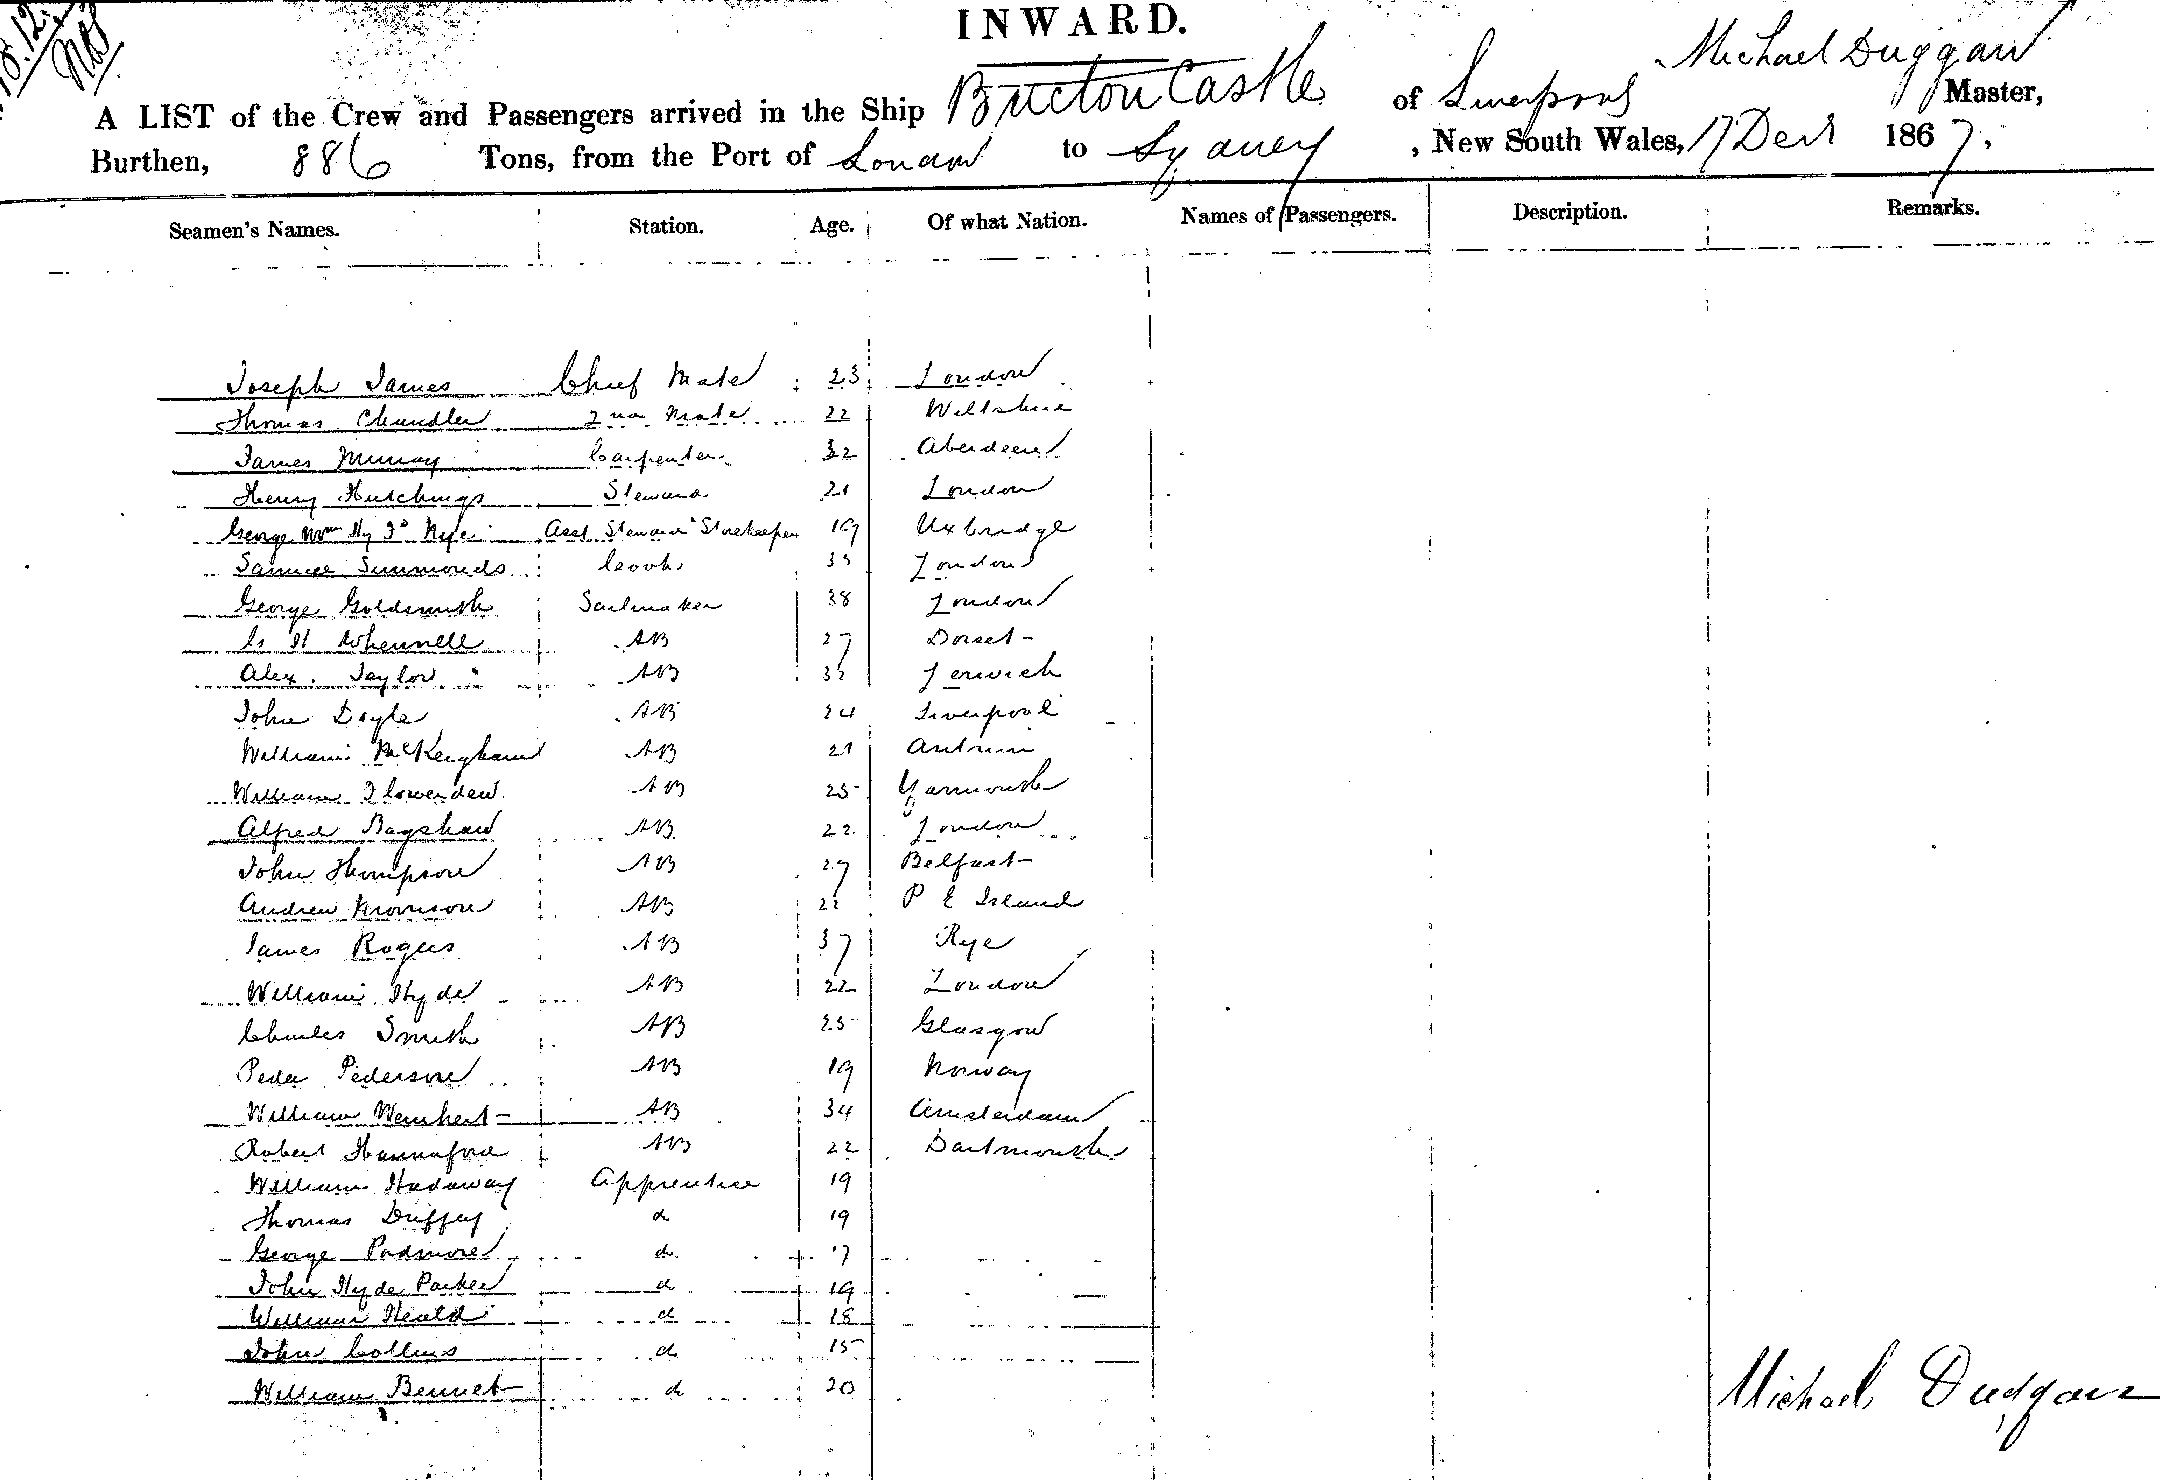 INWARD.
Michael Duggan
A LIST of the Crew and Passengers arrived in the Ship Bructon Castle of Liverpool Master,
Burthen, 886 Tons, from the Port of London to Sydney, New South Wales, 17 Decr 1867.
Seamen's Names. Station. Age. Of what Nation. Names of Passengers. Description. Remarks.
Joseph James Chief Mate 23 London
Thomas Chandler 2nd Mate 22 Wiltshire
James Murray Carpenter 32 Aberdeen
Henry Hutchings Steward 21 London
George Wm Hy Nye Asst Steward Storekeeper 19 Uxbridge
Samuel Simmonds Cook London
George Goldsmith Sailmaker 38 London
Whennell AB 27 Dorset
Alex. Taylor AB Lerwick
John Doyle AB 24 Liverpool
William McKeigham AB 21 Antrim
William Flowerdew AB 25 Yarmouth
Alfred Bagshaw AB 22 London
John Thompson AB 27 Belfast
Andrew Morrison AB 22 P E Island
James Rogers AB 37 Rye
William Hyde AB 22 London
Charles Smith AB 25 Glasgow
Peder Pederson AB 19 Norway
William Weinhert AB 34 Amsterdam
Robert Hannaford AB 22 Dartmouth
William Hadaway Apprentice 19
Thomas Duffey d 19
George Padmore d 17
John Hyde Parker d 19
William Heald d 18
John Collins d 15
William Bennet d 20
Michael Duggan